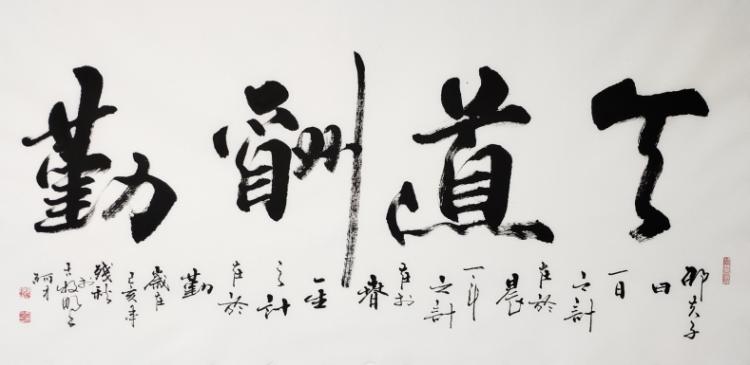 天道酬勤
邵夫子曰一日之計在於晨一年之計在於春一生之計在於勤
歲在己亥年残秋於